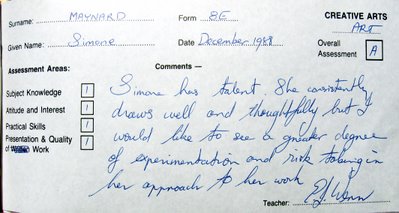 Surname: MAYNARD Form 8E CREATIVE ARTS
ART
Given Name: Simone Date December 1988 Overall Assessment A
Assessment Areas: Comments —
Subject Knowledge 1
Attitude and Interest 1
Practical Skills 1
Presentation & Quality of Work 1
Simone has talent. She consistently
draws well and thoughtfully but I
would like to see a greater degree
of experimentation and risk taking in
her approach to her work
Teacher: